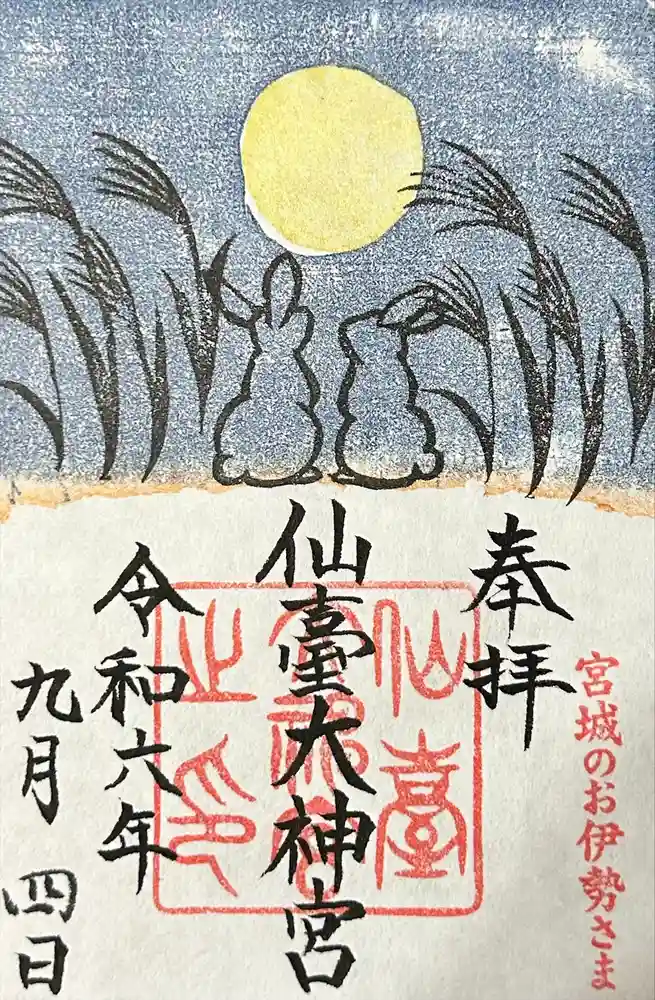 宮城のお伊勢さま
奉拝
仙臺大神宮
令和六年
九月四日
仙臺
大神宮
之印